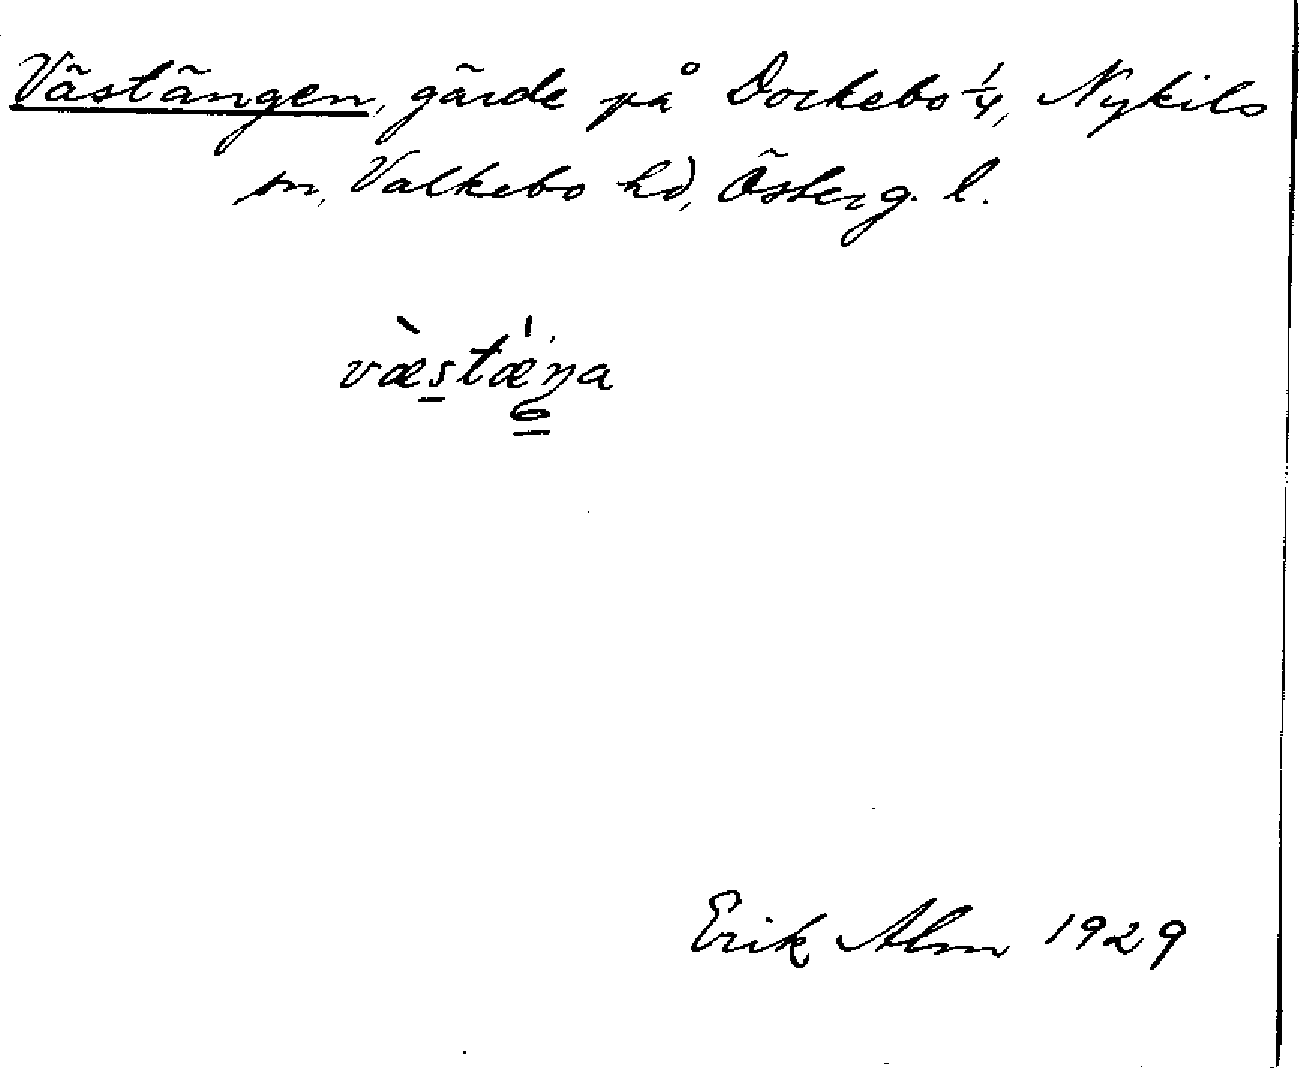 Västängen, gärde på Dockebo 1/4, Nykils
sn, Valkebo hd, Österg. l.
væ̀stǽŋa
Erik Alm 1929